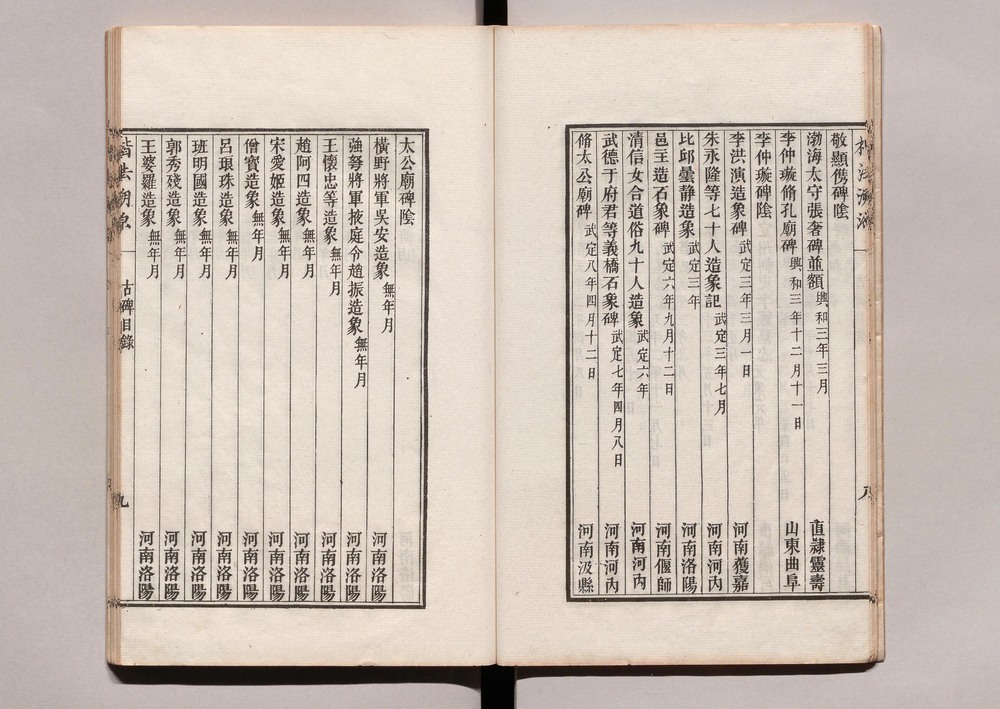 敬顯儁碑陰
渤海太守張奢碑並額 興和三年三月 直隸靈壽
李仲璇脩孔廟碑 興和三年十二月十一日 山東曲阜
李仲璇碑陰
李洪演造象碑 武定三年三月一日 河南獲嘉
朱永隆等七十人造象記 武定三年七月 河南河內
比邱曇静造象 武定三年 河南洛陽
邑主造石象碑 武定六年九月十二日 河南偃師
清信女合道俗九十人造象 武定六年 河南河內
武德于府君等義橋石象碑 武定七年四月八日 河南河內
脩太公廟碑 武定八年四月十二日 河南汲縣
八
太公廟碑陰
橫野將軍吳安造象 無年月 河南洛陽
強弩將軍掖庭令趙振造象 無年月 河南洛陽
王懷忠等造象 無年月 河南洛陽
趙阿四造象 無年月 河南洛陽
宋愛姬造象 無年月 河南洛陽
僧寶造象 無年月 河南洛陽
呂琅珠造象 無年月 河南洛陽
班明國造象 無年月 河南洛陽
郭秀殘造象 無年月 河南洛陽
王婆羅造象 無年月 河南洛陽
古碑目錄
九